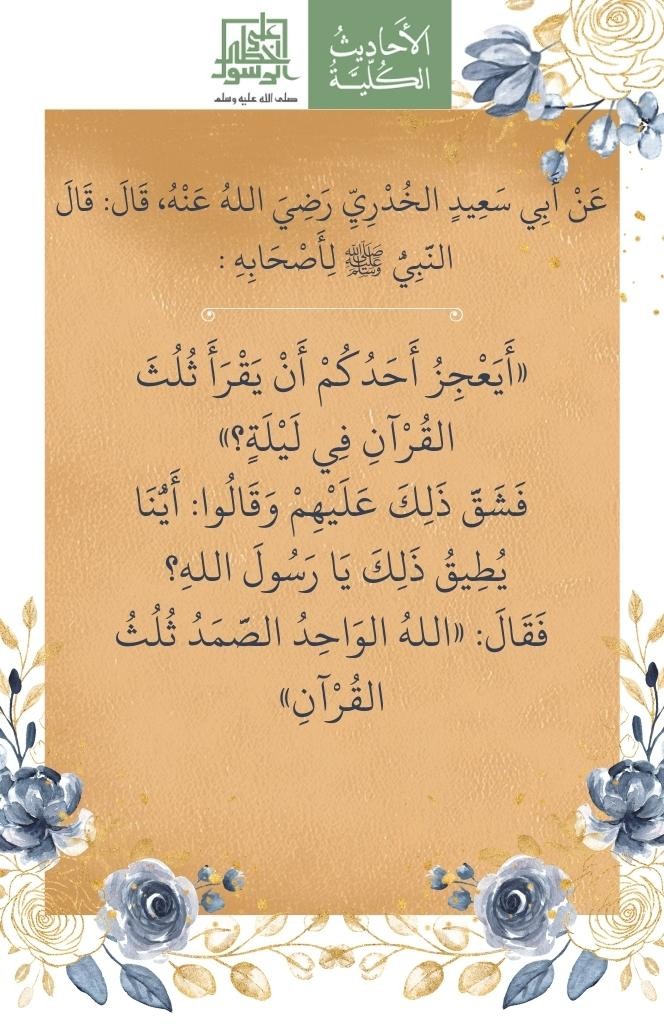 على خطى الرسول
صلى الله عليه وسلم
الأَحَادِيثُ
الكُلِّيَّةُ
عَنْ أَبِي سَعِيدٍ الخُدْرِيِّ رَضِيَ اللهُ عَنْهُ، قَالَ: قَالَ
النّبِيُّ ﷺ لِأَصْحَابِهِ :
«أَيَعْجِزُ أَحَدُكُمْ أَنْ يَقْرَأَ ثُلُثَ
القُرْآنِ فِي لَيْلَةٍ؟»
فَشَقّ ذَلِكَ عَلَيْهِمْ وَقَالُوا: أَيُّنَا
يُطِيقُ ذَلِكَ يَا رَسُولَ اللهِ؟
فَقَالَ: «اللهُ الوَاحِدُ الصّمَدُ ثُلُثُ
القُرْآنِ»